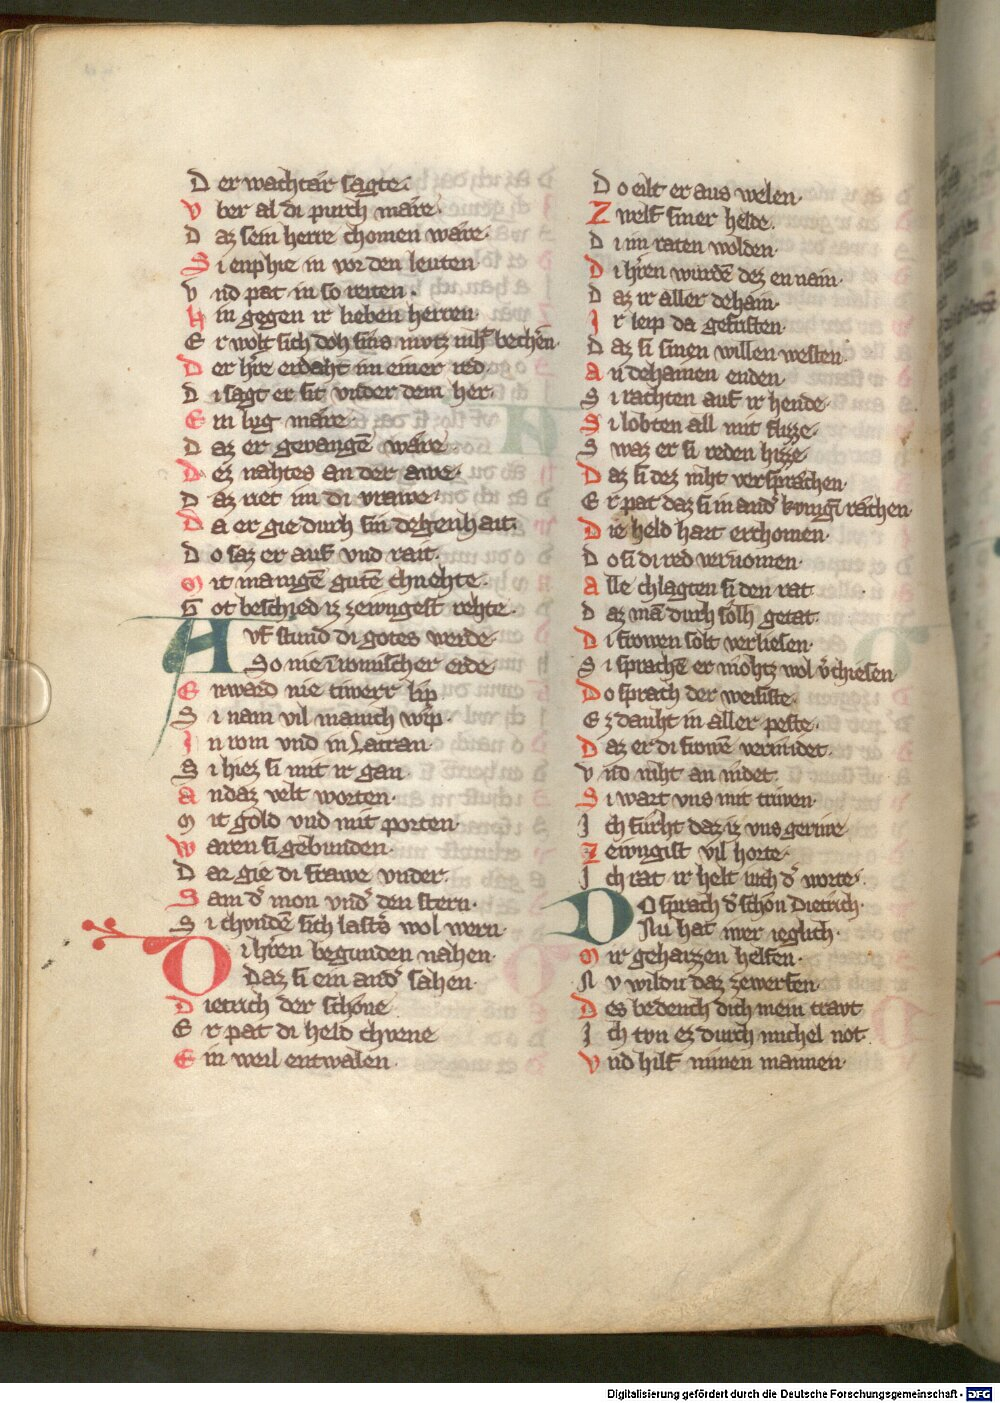 Der wachtar sagte·
Vber al di purch mare·
Daz sein herre chomen ware·
Si enphie in vor den leuten
Vnd pat in so reiten·
Hin gegen ir lieben herren·
Er wolt sich doh
Der h're erdaht im einer red·
Di sagt er sit vnder dem her·
Ein lug mare·
Daz er gevangē ware·
Dez nahtes an der awe·
Daz riet im di vrawe·
Da er gie durch sin degenhait·
Do saz er auf vnd rait·
Mit manigē gutē chnehte·
Got beschied iz zewngest rehte·
Avf stund di gotes werde·
So nie erde·
Enwaid nie tiwerr lip
Si nam vil manich wip·
In rom vnd in Latran·
Si hiez si mit ir gan·
An daz velt worten·
Mit gold vnd mit porten·
Waren si gebunden·
Dar gie di frawe vnder·
Sam d' mon vnd' den stern·
Si chvndē sich last's wol wern·
Di h'ren begunden nahen·
Daz si ein and' sahen·
Dietrich der schone
Er pat di held chvene
Ein weil entwalen·
Do eilt er aus welen·
Zwelf siner helde·
Di im raten wolden·
Di h'ren wurdē dez en nain·
Daz ir aller dehain·
Ir leip da gefristen·
Daz si sinen willen westen·
An dehainen enden·
Si rachten auf ir hende·
Si lobten all mit flizze·
Swaz er si reden hizze·
Daz si dez niht versprachen·
Er pat daz si in and' kvnigī rachen·
Die held hart erchomen·
Do si di red vernomen·
Alle chlagten si den rat
Daz mā durch solh getat·
Di frowen solt verliesen·
Si sprachē er mohtz wol v'chiesen·
Do sprach der weisiste·
Ez dauht in aller peste·
Daz er di frowē vermidet·
Vnd niht an nidet·
Si wart vns mit triven·
Ich furht daz iz vns geriwe·
Zewngist vil horte·
Ich rat ir helt iuch d' worte·
Do sprach d' schon Dietrich·
Nu hat imer ieglich·
Mir geharzen helfen·
Nv wildu daz zewerfen·
Des bedench dich mein travt
Ich tvn ez durch michel not·
Vnd hilf minen mannen·
Digitalisierung gefördert durch die Deutsche Forschungsgemeinschaft - DFG